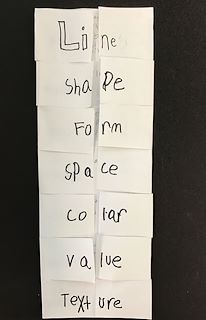 Line
Shape
Form
Space
Color
Value
Texture